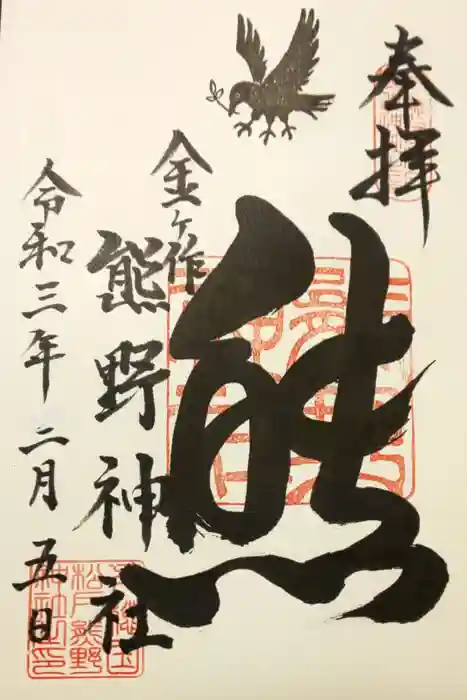 奉拝
熊
金ヶ作
熊野神社
令和三年二月五日